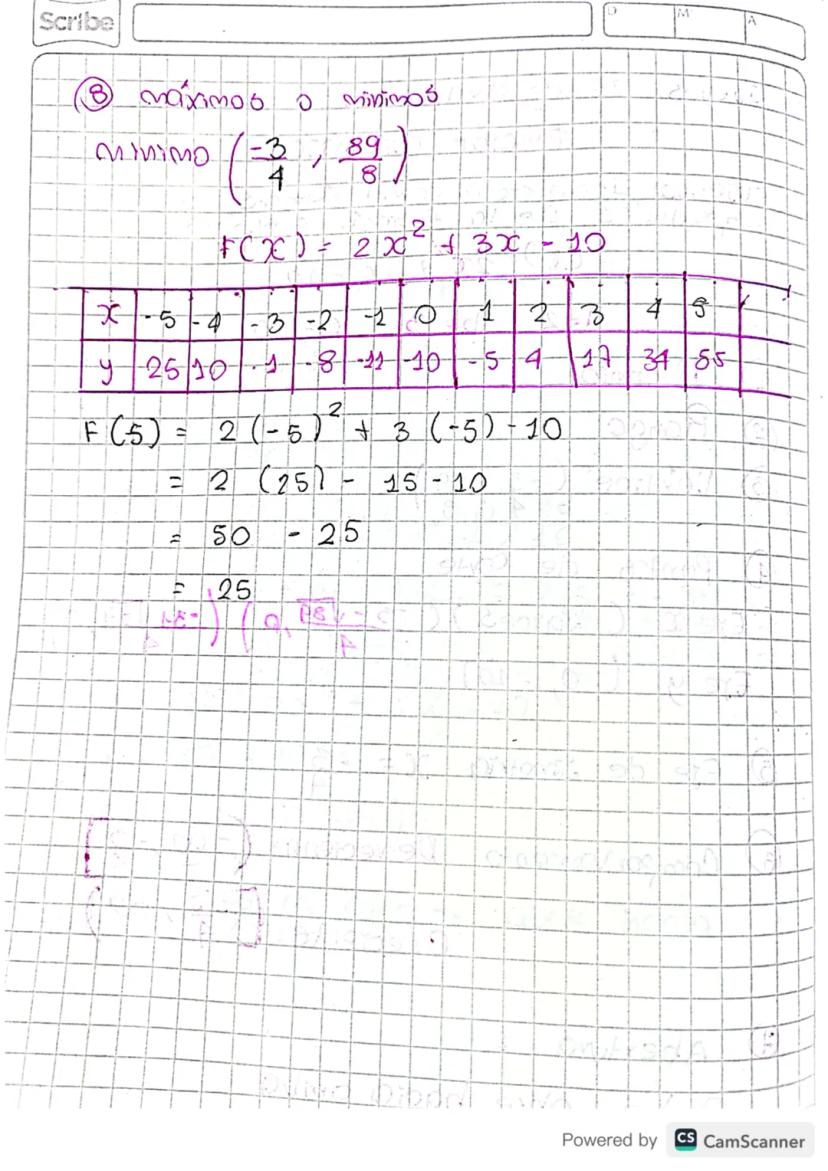 Scribe
D M A
8 máximos o mínimos
mínimo (-3/4 , 89/8)
F(x) = 2x² + 3x - 10
x -5 -4 -3 -2 -1 0 1 2 3 4 5
y 25 10 -1 -8 -11 -10 -5 4 17 34 55
F(5) = 2(-5)² + 3(-5) - 10
= 2 (25) - 15 - 10
= 50 - 25
= 25
Powered by CS CamScanner